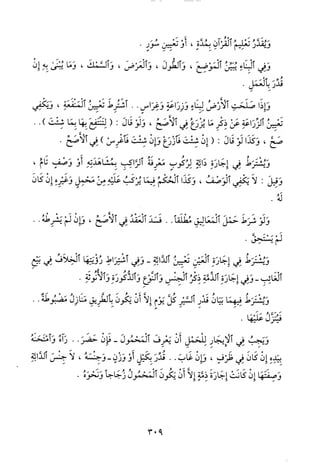 وَيُقَدَّرُ تَعْلِيمُ الْقُرْآنِ بِمُدَّةٍ ، أَوْ تَعْيِينِ سُوَرٍ .
وَفِي الْبِنَاءِ يُبَيَّنُ الْمَوْضِعُ ، وَالطُّولُ ، وَالْعَرْضُ ، وَالسَّمْكُ ، وَمَا يُبْنَىٰ بِهِ إِنْ
قُدِّرَ بِالْعَمَلِ .
وَإِذَا صَلَحَتِ الْأَرْضُ لِبِنَاءٍ وَزِرَاعَةٍ وَغِرَاسٍ . . اشْتُرِطَ تَعْيِينُ الْمَنْفَعَةِ ، وَيَكْفِي
تَعْيِينُ الزِّرَاعَةِ عَنْ ذِكْرِ مَا يُزْرَعُ فِي الْأَصَحِّ ، وَلَوْ قَالَ : ( لِتَنْتَفِعَ بِهَا بِمَا شِئْتَ ) . .
صَحَّ ، وَكَذَا لَوْ قَالَ : ( إِنْ شِئْتَ فَازْرَعْ وَإِنْ شِئْتَ فَاغْرِسْ ) فِي الْأَصَحِّ .
وَيُشْتَرَطُ فِي إِجَارَةِ دَابَّةٍ لِرُكُوبٍ مَعْرِفَةُ الرَّاكِبِ بِمُشَاهَدَةٍ أَوْ وَصْفٍ تَامٍّ ،
وَقِيلَ : لَا يَكْفِي الْوَصْفُ ، وَكَذَا الْحُكْمُ فِيمَا يُرْكَبُ عَلَيْهِ مِنْ مَحْمِلٍ وَغَيْرِهِ إِنْ كَانَ
لَهُ .
وَلَوْ شَرَطَ حَمْلَ الْمَعَالِيقِ مُطْلَقاً . . فَسَدَ الْعَقْدُ فِي الْأَصَحِّ ، وَإِنْ لَمْ يَشْرِطْهُ . .
لَمْ يَسْتَحِقَّ .
وَيُشْتَرَطُ فِي إِجَارَةِ الْعَيْنِ تَعْيِينُ الدَّابَّةِ - وَفِي اشْتِرَاطِ رُؤْيَتِهَا الْخِلَافُ فِي بَيْعِ
الْغَائِبِ - وَفِي إِجَارَةِ الذِّمَّةِ ذِكْرُ الْجِنْسِ وَالنَّوْعِ وَالذُّكُورَةِ وَالْأُنُوثَةِ .
وَيُشْتَرَطُ فِيهِمَا بَيَانُ قَدْرِ السَّيْرِ كُلَّ يَوْمٍ إِلَّا أَنْ يَكُونَ بِالطَّرِيقِ مَنَازِلُ مَضْبُوطَةٌ . .
فَيُنَزَّلُ عَلَيْهَا .
وَيَجِبُ فِي الْإِيجَارِ لِلْحَمْلِ أَنْ يَعْرِفَ الْمَحْمُولَ - فَإِنْ حَضَرَ . . رَآهُ وَامْتَحَنَهُ
بِيَدِهِ إِنْ كَانَ فِي ظَرْفٍ ، وَإِنْ غَابَ . . قُدِّرَ بِكَيْلٍ أَوْ وَزْنٍ - وَجِنْسَهُ ، لَا جِنْسَ الدَّابَّةِ
وَصِفَتَهَا إِنْ كَانَتْ إِجَارَةَ ذِمَّةٍ إِلَّا أَنْ يَكُونَ الْمَحْمُولُ زُجَاجاً وَنَحْوَهُ .
٣٠٩